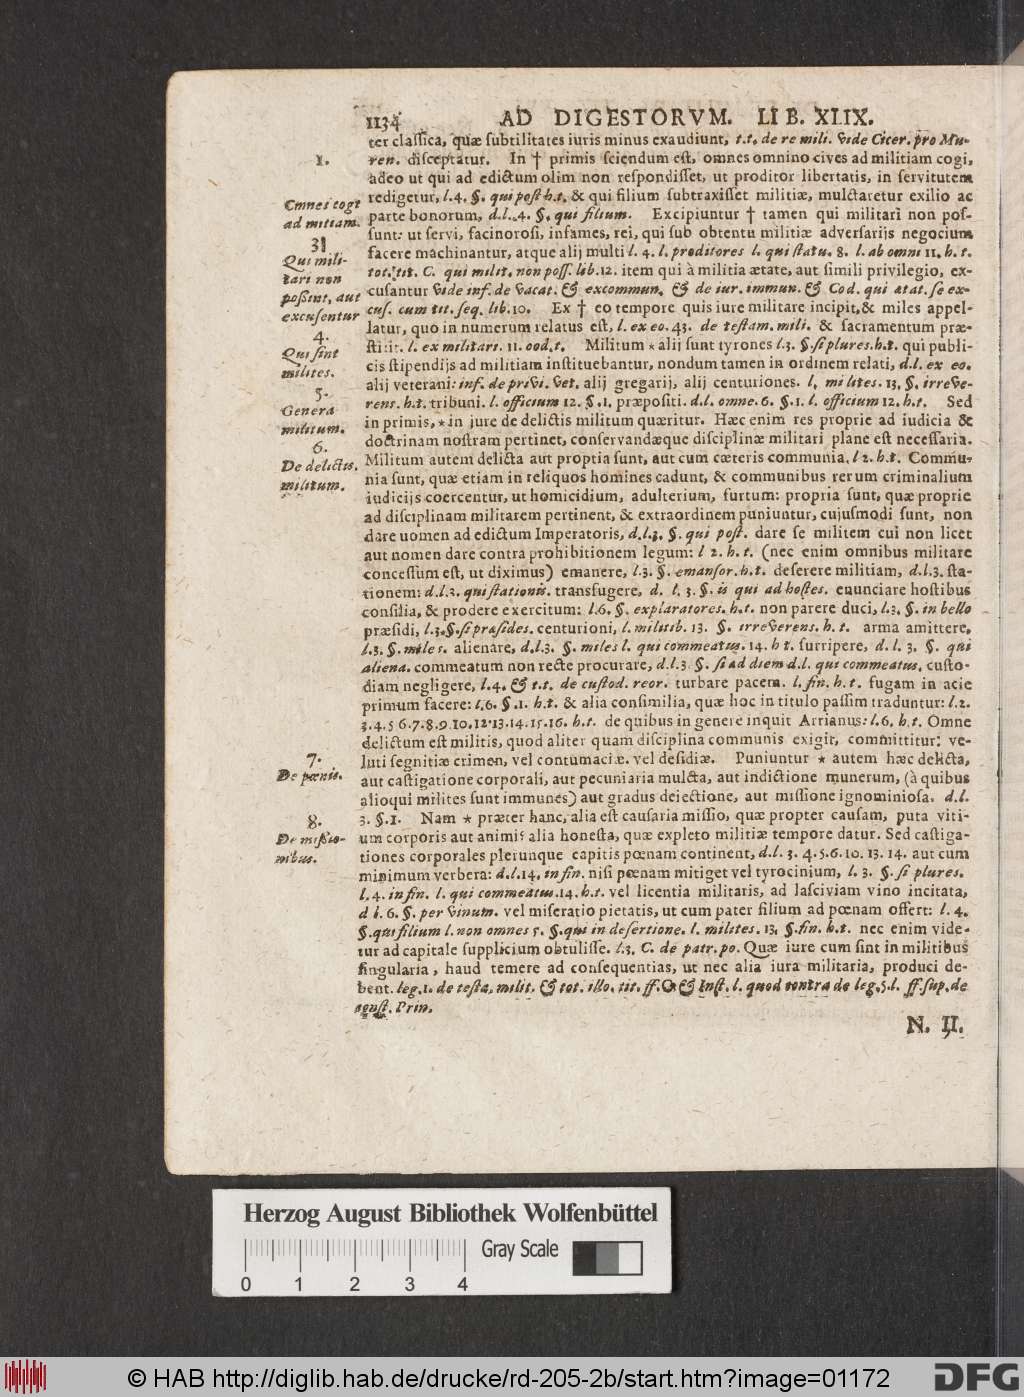 1134 AD DIGESTORVM. LIB. XLIX.
ter classica, quæ subtilitates iuris minus exaudiunt, t.t. de re mili. vide Cicer. pro Mu-
1.
ren. disceptatur. In † primis sciendum est, omnes omnino cives ad militiam cogi,
adeo ut qui ad edictum olim non respondisset, ut proditor libertatis, in servitutem
redigetur, l.4. §. qui post h.t. & qui filium subtraxisset militiæ, mulctaretur exilio ac
Omnes cogi
ad militiam.
parte bonorum, d.l. 4. §. qui filium. Excipiuntur † tamen qui militari non pos-
sunt: ut servi, facinorosi, infames, rei, qui sub obtentu militiæ adversarijs negocium
3
Qui mili-
tari non
possint, aut
excusentur
facere machinantur, atque alij multi l. 4. l. proditores l. qui statu. 8. l. ab omni 11. h. t.
tot. tit. C. qui milit. non poss. lib. 12. item qui à militia ætate, aut simili privilegio, ex-
cusantur vide inf. de vacat. & excommun. & de iur. immun. & Cod. qui ætat. se ex-
cus. cum tit. seq. lib. 10. Ex † eo tempore quis iure militare incipit, & miles appel-
latur, quo in numerum relatus est, l. ex eo. 43. de testam. mili. & sacramentum præ-
4.
Qui sint
milites.
stitit. l. ex militari. 11. eod. t. Militum * alij sunt tyrones l.3. §. si plures. h.t. qui publi-
cis stipendijs ad militiam instituebantur, nondum tamen in ordinem relati, d.l. ex eo.
alij veterani: inf. de privi. vet. alij gregarij, alij centuriones. l. milites. 13. §. irreve-
5.
Genera
militum.
rens. h.t. tribuni. l. officium 12. §. 1. præpositi. d.l. omne. 6. §. 1. l. officium 12. h.t. Sed
in primis, * in jure de delictis militum quæritur. Hæc enim res proprie ad iudicia &
doctrinam nostram pertinet, conservandæque disciplinæ militari plane est necessaria.
6.
De delictis
militum.
Militum autem delicta aut propria sunt, aut cum cæteris communia. l 2. h.t. Commu-
nia sunt, quæ etiam in reliquos homines cadunt, & communibus rerum criminalium
iudicijs coercentur, ut homicidium, adulterium, furtum: propria sunt, quæ proprie
ad disciplinam militarem pertinent, & extraordinem puniuntur, cujusmodi sunt, non
dare nomen ad edictum Imperatoris, d.l.3. §. qui post. dare se militem cui non licet
aut nomen dare contra prohibitionem legum: l 2. h. t. (nec enim omnibus militare
concessum est, ut diximus) emanere, l.3. §. emansor. h.t. deserere militiam, d.l.3. sta-
tionem: d.l.3. qui stationis. transfugere, d. l. 3. §. is qui ad hostes. enunciare hostibus
consilia, & prodere exercitum: l.6. §. explaratores. h.t. non parere duci, l.3. §. in bello
præsidi, l.3.§. si præsides. centurioni, l. militib. 13. §. irreverens. h. t. arma amittere,
l.3. §. miles. alienare, d.l.3. §. miles l. qui commeatus. 14. h t. surripere, d. l. 3. §. qui
aliena. commeatum non recte procurare, d.l.3 §. si ad diem d.l. qui commeatus. custo-
diam negligere, l.4. & t.t. de custod. reor. turbare pacem. l. fin. h.t. fugam in acie
primum facere: l.6. §. 1. h.t. & alia consimilia, quæ hoc in titulo passim traduntur: l.2.
3.4.5 6.7.8.9.10.12.13.14.15.16. h.t. de quibus in genere inquit Arrianus: l.6. h.t. Omne
delictum est militis, quod aliter quam disciplina communis exigit, committitur: ve-
7.
De pœnis.
luti segnitiæ crimen, vel contumaciæ. vel desidiæ. Puniuntur * autem hæc delicta,
aut castigatione corporali, aut pecuniaria mulcta, aut indictione munerum, (à quibus
alioqui milites sunt immunes) aut gradus deiectione, aut missione ignominiosa. d.l.
8.
De missio-
nibus.
3. §.1. Nam * præter hanc, alia est causaria missio, quæ propter causam, puta viti-
um corporis aut animi: alia honesta, quæ expleto militiæ tempore datur. Sed castiga-
tiones corporales plerunque capitis pœnam continent, d.l. 3. 4.5.6.10. 13. 14. aut cum
minimum verbera: d.l.14. in fin. nisi pœnam mitiget vel tyrocinium, l. 3. §. si plures.
l.4. in fin. l. qui commeatus.14. h.t. vel licentia militaris, ad lasciviam vino incitata,
d l. 6. §. per vinum. vel miseratio pietatis, ut cum pater filium ad pœnam offert: l. 4.
§. qui filium l. non omnes 5. §. qui in desertione. l. milites. 13. §. fin. h.t. nec enim vide-
tur ad capitale supplicium obtulisse. l.3. C. de patr. po. Quæ iure cum sint in militibus
singularia, haud temere ad consequentias, ut nec alia iura militaria, produci de-
bent. leg.1. de testa. milit. & tot. illo. tit. ff. C & Inst. l. quod contra de leg. 5.l. ff. sup. de
agust. Prin.
N. II.
Herzog August Bibliothek Wolfenbüttel
Gray Scale
0 1 2 3 4
© HAB http://diglib.hab.de/drucke/rd-205-2b/start.htm?image=01172
DFG